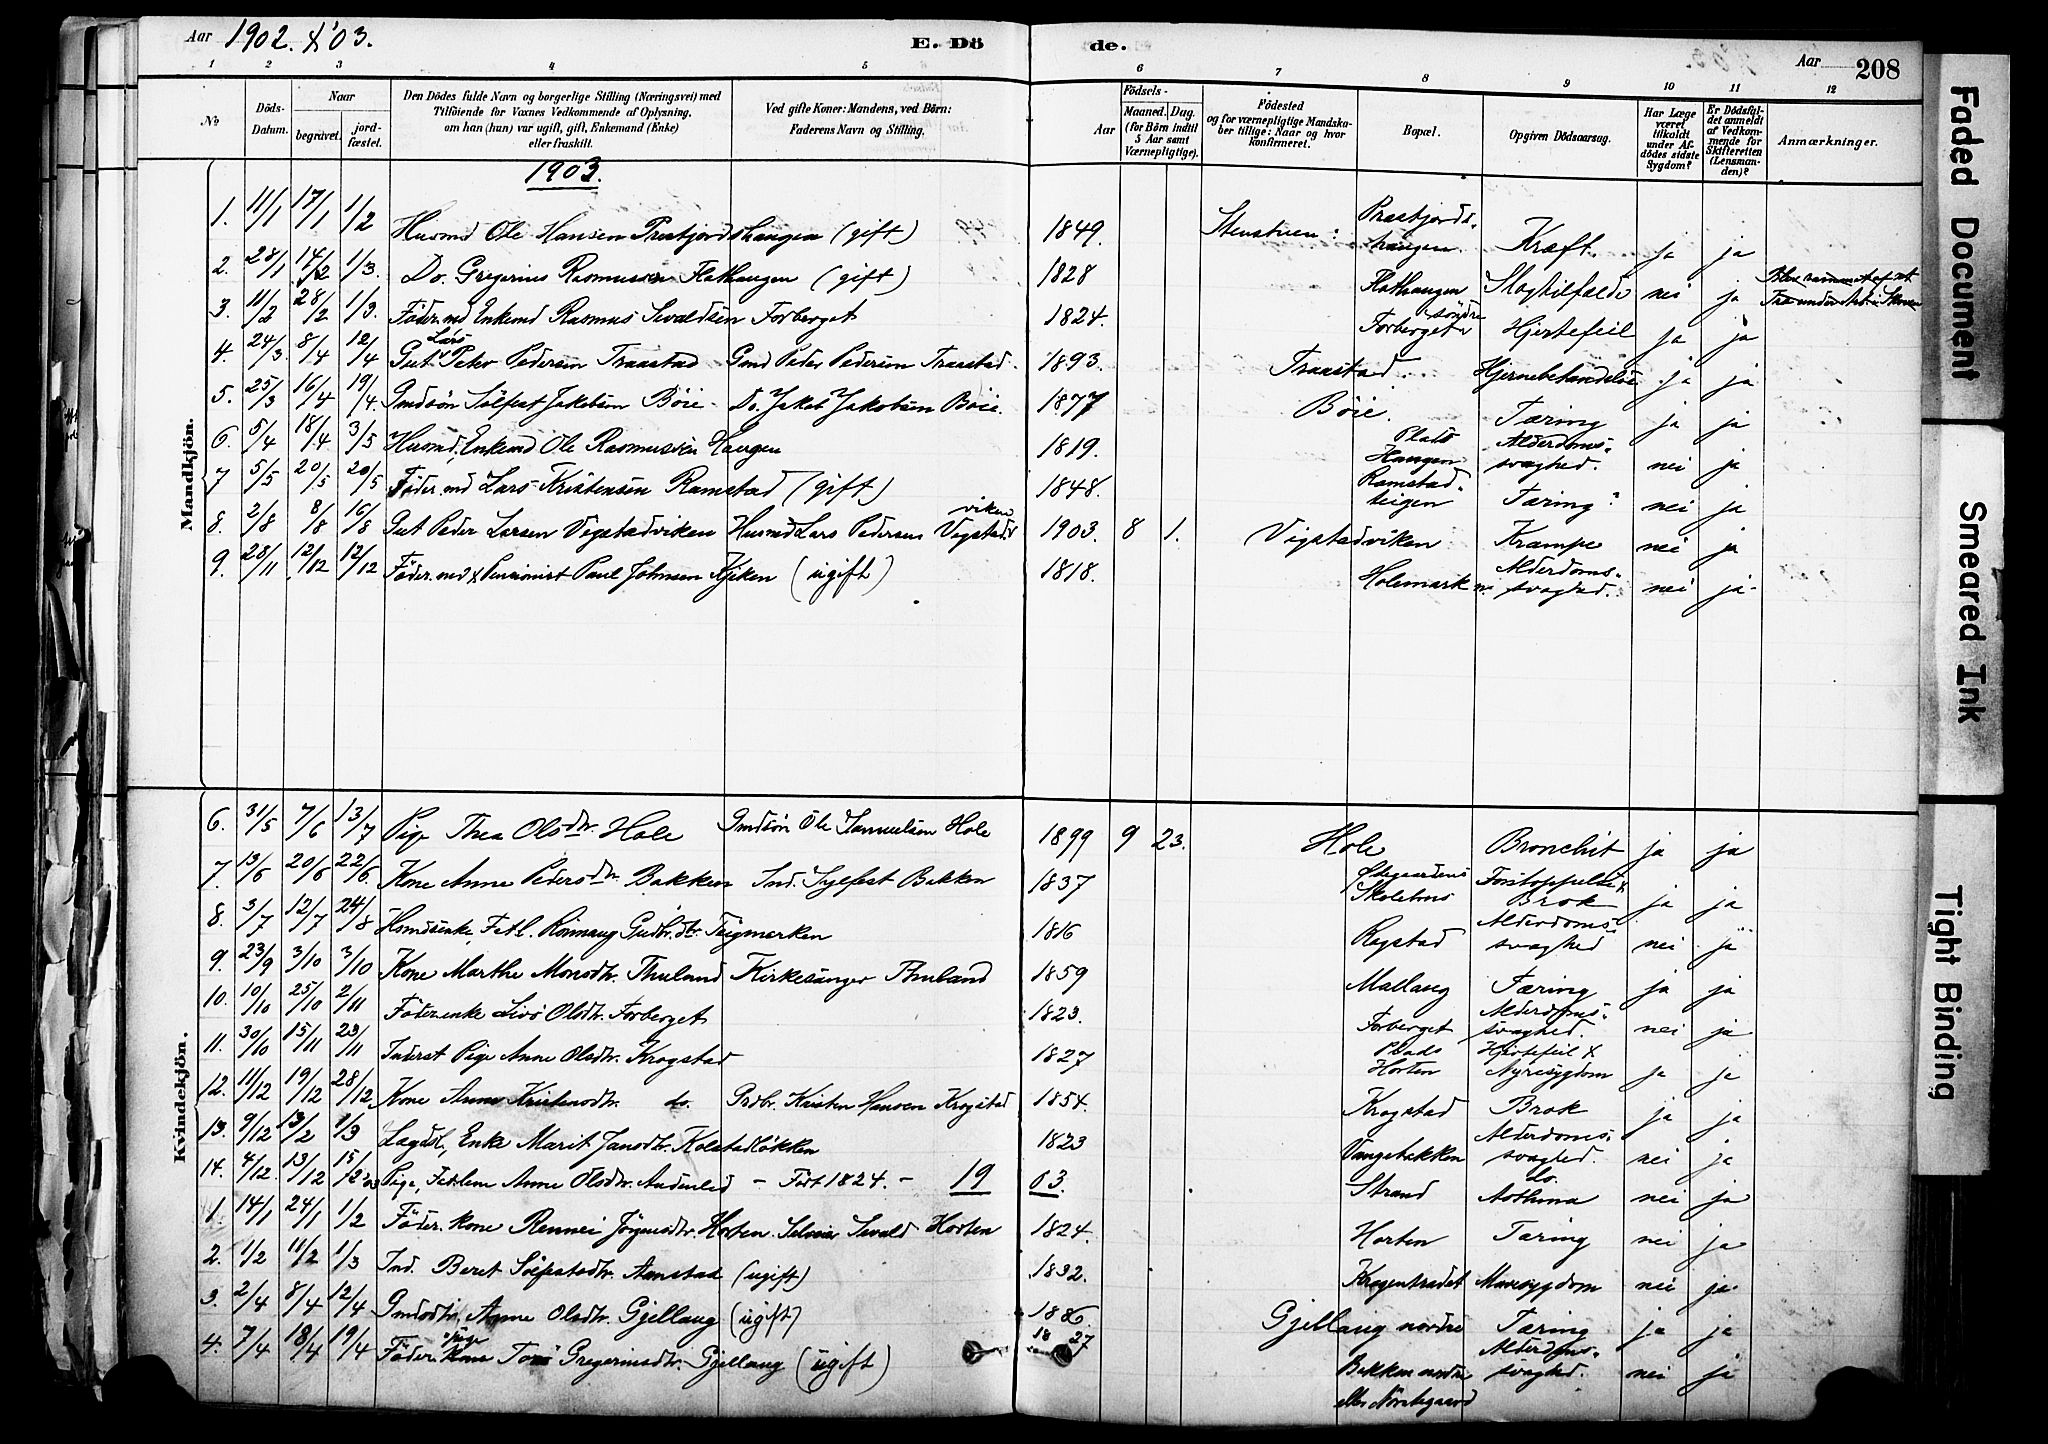 Aar 1902. & '03.
E. Döde.
Aar 208
1 2 3 4 5 6 7 8 9 10 11 12
No
Döds-Datum.
Naar
begravet.
jord-fæstet.
Den Dödes fulde Navn og borgerlige Stilling (Næringsvei) med
Tilföiende for Voxnes Vedkommende af Oplysning,
om han (hun) var ugift, gift, Enkemand (Enke)
eller fraskilt.
Ved gifte Koner: Mandens, ved Börn:
Faderens Navn og Stilling.
Födsels-
Aar
Maaned. Dag.
(for Børn indtil
5 Aar samt
Værnepligtige).
Födested
og for værnepligtige Mandska-
ber tillige: Naar og hvor
konfirmeret.
Bopæl.
Opgiven Dödsaarsag.
Har Læge
været
tilkaldt
under Af-
dödes sidste
Sygdom?
Er Dödsfal-
det anmeldt
af Vedkom-
mende for
Skifteretten
(Lensman-
den)?
Anmærkninger.
Mandkjön.
1903.
1. 11/1 17/1 1/2 Husmd Ole Hansen Præstjordshaugen (gift) 1849. Stenstuen: Præstjords-haugen Kræft. ja ja
2. 28/1 14/2 1/3. Do. Gregerius Rasmussen Flathaugen (gift) 1828 Flathaugen Slagtilfælde nei ja
3. 11/2 28/2 1/3. Föder.md Enkemd Rasmus Sevaldsen Forberget 1824. Forberget söndre Hjertefeil ja ja
4. 24/3 8/4 12/4 Gut Lars Peter Pedersen Traastad Gmd Peder Pedersen Traastad. 1893. Traastad. Hjernebetændelse ja ja
5. 25/3 16/4 19/4. Gmdsön Sölfest Jakobsen Böie. Do. Jakob Jakobsen Böie. 1877 Böie. Tæring ja ja
6. 5/4 18/4 3/5 Husmd, Enkemd Ole Rasmussen Haugen 1819. Plads Haugen Alderdoms-svaghed. nei ja
7 5/5 20/5 20/5 Föder.md Lars Kristensen Ramstad (gift) 1848. Ramstad-teigen Tæring? nei ja
8. 2/8 8/8 16/8 Gut Peder Larsen Vigstadviken Husmd Lars Pedersen Vigstadviken 1903. 8 1. Vigstadviken Krampe nei ja
9. 28/11 12/12 12/12 Föder.md & Pensionist Paul Johnsen Kjeken (ugift) 1818. Holemark Alderdoms-svaghed. nei ja
Kvindekjön.
6. 31/5 7/6 13/7 Pige Thea Olsdtr. Hole Gmdsön Ole Samuelsen Hole 1899 9 23. Hole Bronchit ja ja
7. 13/6 20/6 22/6. Kone Anne Pedersdtr. Bakken Ind. Sylfest Bakken 1837 Skolehus Forstoppelse & Brok ja ja
8. 3/7 12/7 24/8 Fetl. Rönnaug Gudb.dtr. Teigmarken 1816 Rogstad Alderdoms-svaghed nei ja
9. 23/9 3/10 3/10 Kone Marthe Monsdtr. Thuland Kirkesanger Thuland 1859 Mallaug Tæring ja ja
10. 10/10 25/10 2/11 Föder.enke Livö Olsdtr. Forberget 1823. Forberget Alderdoms-svaghed. nei ja
11. 30/10 15/11 23/11 Inderst Pige Anne Olsdtr. Krogstad 1827 Plads Horten Hjertefeil & Nyresygdom ja ja
12. 11/12 19/12 28/12 Kone Anne Kristensdtr. do. Grdbr. Kristen Hansen Krogstad 1854. Krogstad Brok ja ja
13. 9/12 13/2 1/3 Lægdsl, Enke Marit Jansdtr. Kolstadlökken 1823 Vangebakken Alderdoms-svaghed. nei ja
14. 4/12. 13/12 15/12 Pige, Fattiglem Anne Olsdtr. Andenled - Födt 1824. - Strand do. Asthma nei ja
1903.
1. 14/1 24/1 1/2 Föder.kone Rennei Jörgensdtr. Horten. Selveier Sevald Horten 1824. Horten Tæring nei ja
2. 1/2 11/2 1/3 Ind. Beret Sölfestsdtr. Aanstad (ugift) 1832. Krogentrædet Mavesygdom nei ja
3. 2/4 8/4 12/4 Gmdsdtr, Anne Olsdtr. Gjellaug (ugift) 1886. Gjellaug nordre Tæring ja ja
4. 7/4 18/4 19/4 Föder.pige Gregeriusdtr. Gjellaug (ugift) 1827 Bakken nordre eller Nörstegaard Alderdoms-svaghed. nei ja
Faded Document
Smeared Ink
Tight Binding